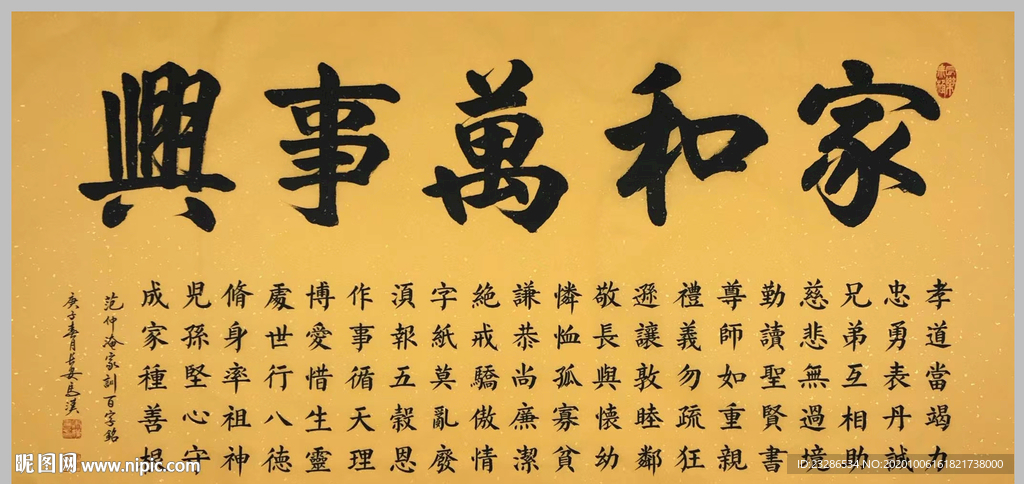 家和萬事興
孝道當竭力
忠勇表丹誠
兄弟互相助
慈悲無過境
勤讀聖賢書
尊師如重親
禮義勿疏狂
遜讓敦睦鄰
敬長與懷幼
憐恤孤寡貧
謙恭尚廉潔
絕戒驕傲情
字紙莫亂廢
須報五穀恩
作事循天理
博愛惜生靈
處世行八德
脩身率祖神
兒孫堅心守
成家種善根
范仲淹家訓百字銘
庚子春月
昵图网 www.nipic.com
ID:23286534 NO:20201006161821738000